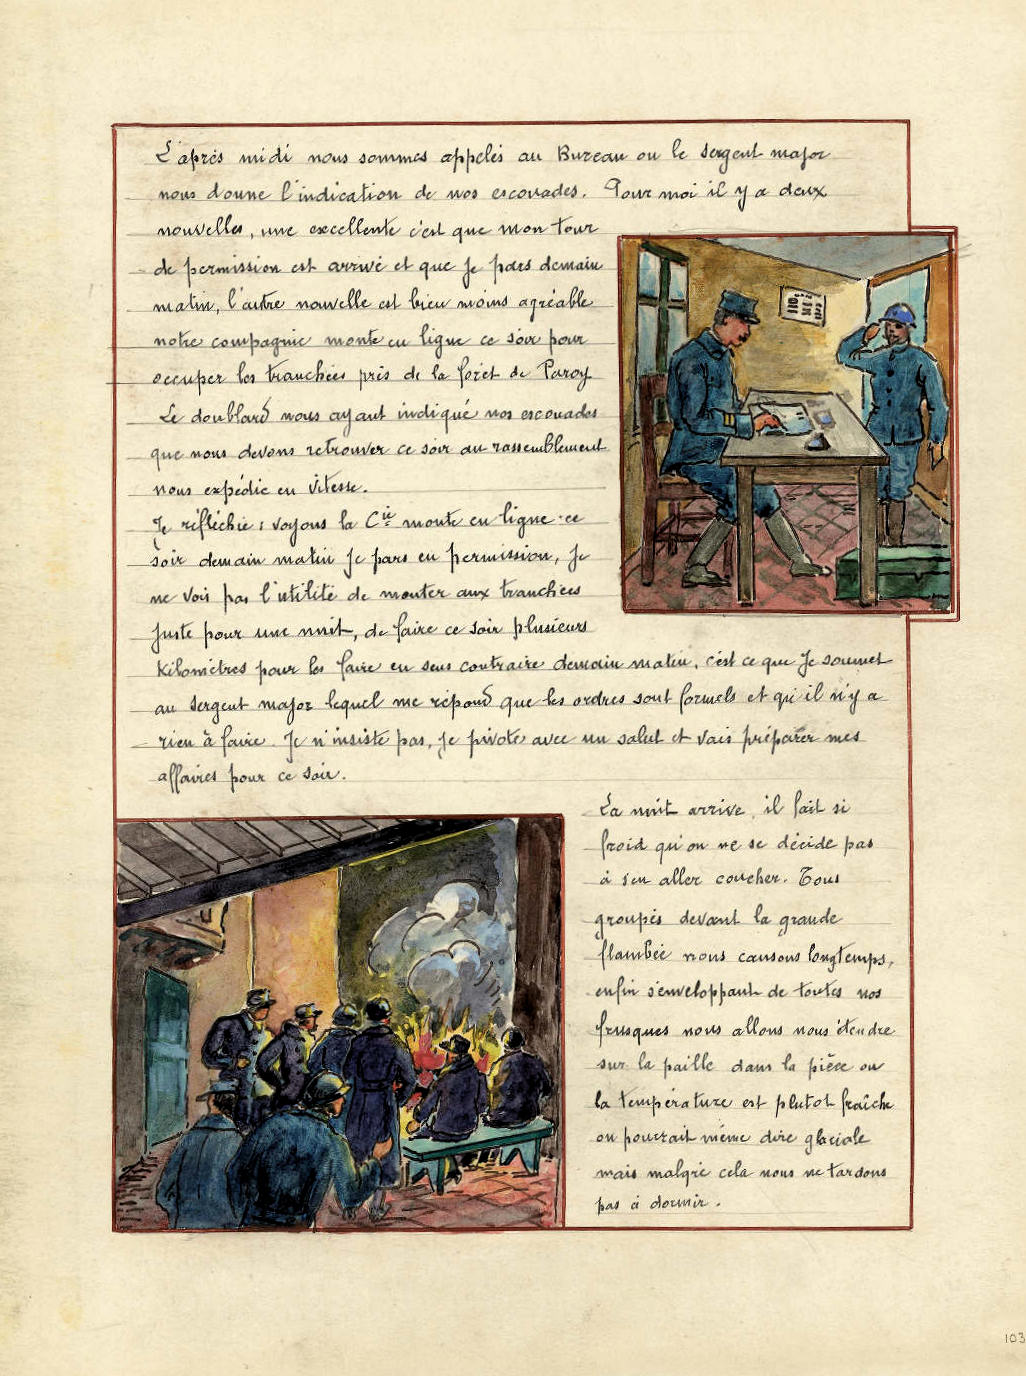 L'après midi nous sommes appelés au Bureau ou le sergent major
nous donne l'indication de nos escouades. Pour moi il y a deux
nouvelles, une excellente c'est que mon tour
de permission est arrivé et que je pars demain
matin, l'autre nouvelle est bien moins agréable
notre compagnie monte en ligne ce soir pour
occuper les tranchées près de la forêt de Paroy
Le doublard nous ayant indiqué nos escouades
que nous devons retrouver ce soir au rassemblement
nous expédie en vitesse.
Je réfléchie : voyons la Cie monte en ligne ce
soir demain matin je pars en permission, je
ne vois pas l'utilité de monter aux tranchées
juste pour une nuit, de faire ce soir plusieurs
kilomètres pour les faire en sens contraire demain matin, c'est ce que je soumet
au sergent major lequel me répond que les ordres sont formels et qu'il n'y a
rien à faire. Je n'insiste pas, je pivote avec un salut et vais préparer mes
affaires pour ce soir.
La nuit arrive, il fait si
froid qu'on ne se décide pas
à s'en aller coucher. Tous
groupés devant la grande
flambée nous causons longtemps,
enfin s'enveloppant de toutes nos
frusques nous allons nous étendre
sur la paille dans la pièce ou
la température est plutot fraîche
on pourrait même dire glaciale
mais malgré cela nous ne tardons
pas à dormir.
103